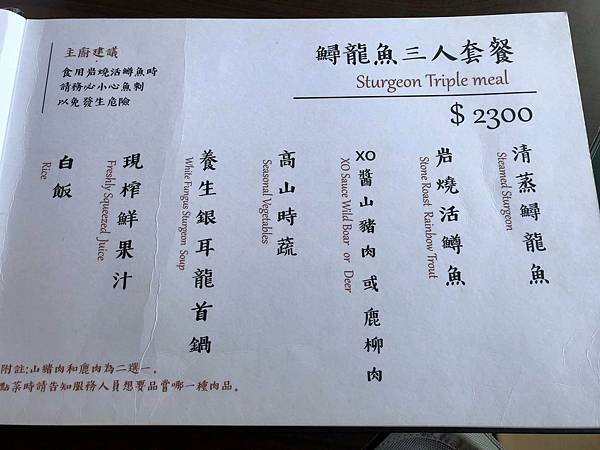 鱘龍魚三人套餐
Sturgeon Triple meal
$ 2300
主廚建議
食用岩燒活鱒魚時
請務必小心魚刺
以免發生危險
清蒸鱘龍魚
Steamed Sturgeon
岩燒活鱒魚
Stone Roast Rainbow Trout
XO醬山豬肉或鹿柳肉
XO Sauce Wild Boar or Deer
高山時蔬
Seasonal Vegetables
養生銀耳龍首鍋
White Fungus Sturgeon Soup
現榨鮮果汁
Freshly Squeezed Juice
白飯
Rice
附註:山豬肉和鹿肉為二選一。
點菜時請告知服務人員想要品嘗哪一種肉品。